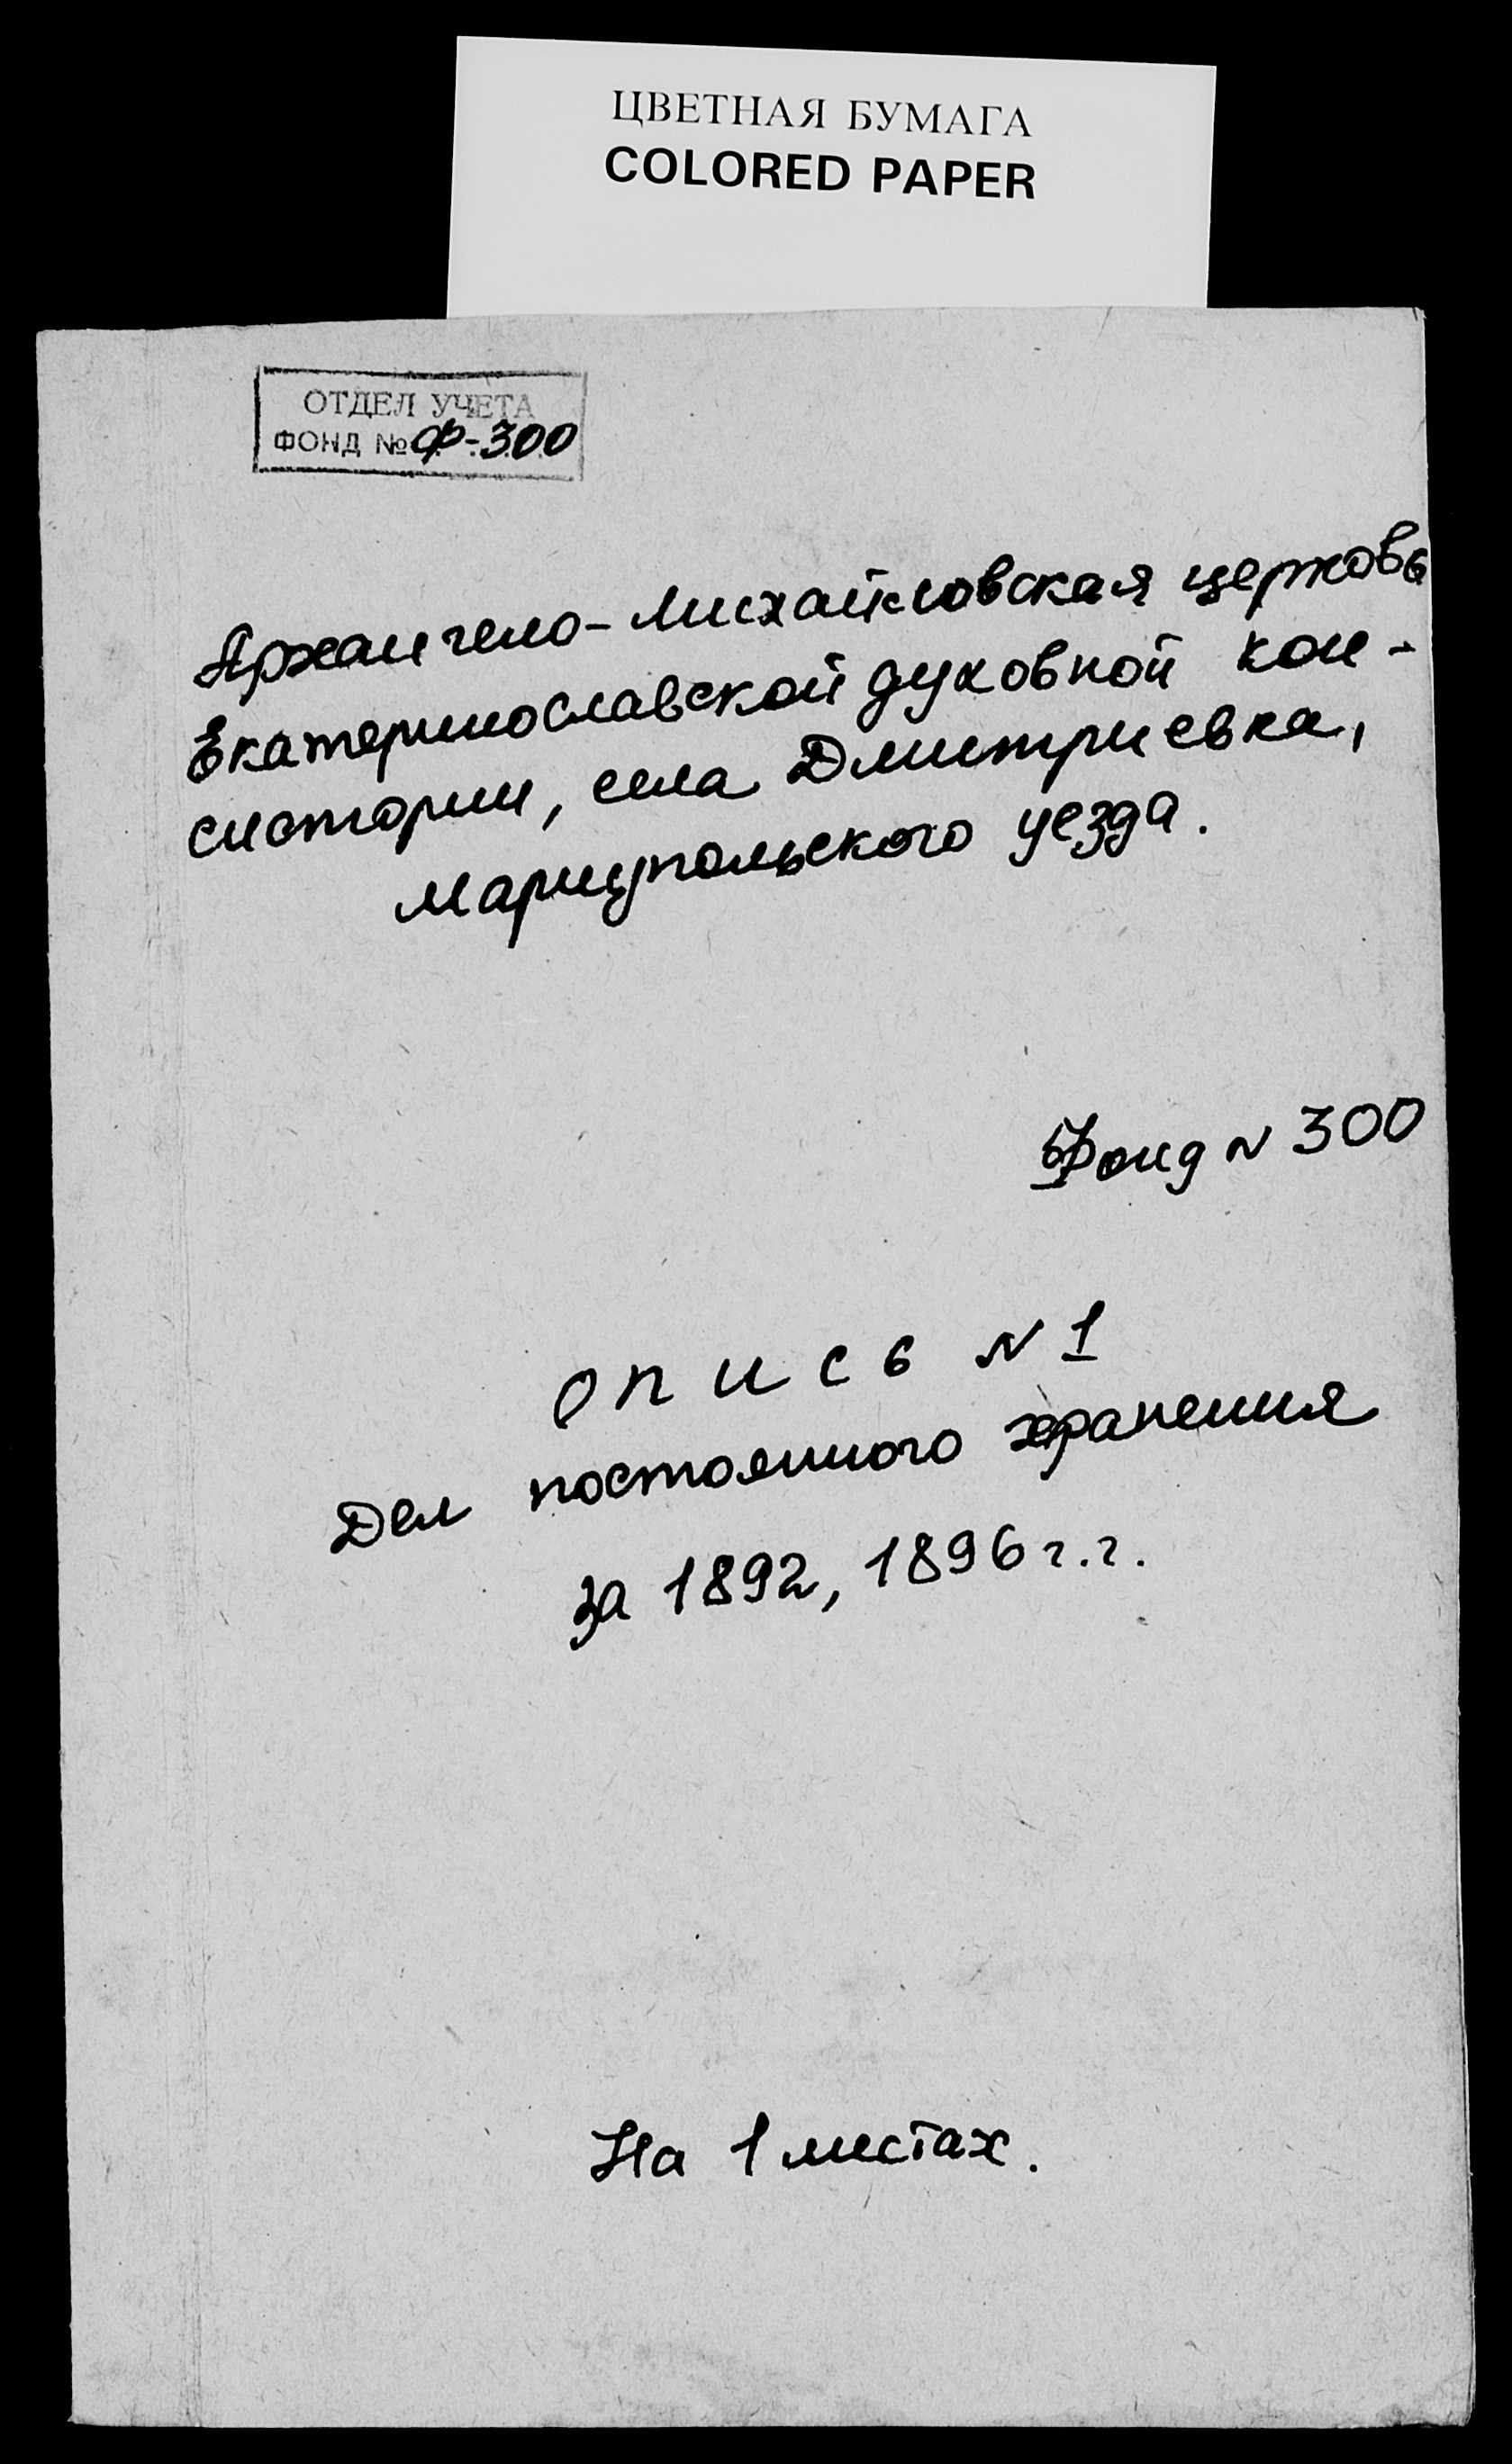 ЦВЕТНАЯ БУМАГА
COLORED PAPER
ОТДЕЛ УЧЕТА
ФОНД № Ф-300
Архангело-Михайловская церковь
Екатеринославской духовной кон-
систории, села Дмитриевка,
Мариупольского уезда.
Фонд N 300
Опись N 1
Дел постоянного хранения
за 1892, 1896 г.г.
На 1 листах.